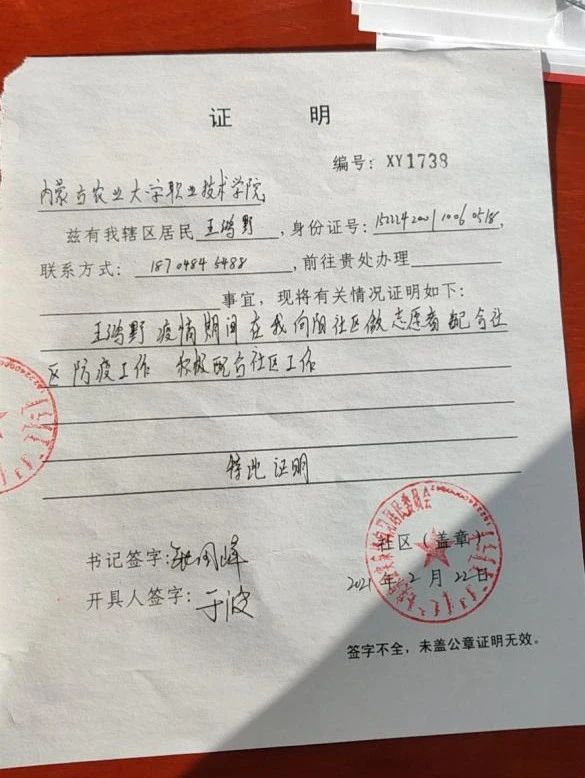 证 明
编号：XY1738
内蒙古农业大学职业技术学院
兹有我辖区居民王鸿野，身份证号：152224200110060518，
联系方式：18704845488，前往贵处办理
事宜，现将有关情况证明如下：
王鸿野疫情期间在我向阳社区做志愿者配合社
区防疫工作 积极配合社区工作
特此证明
社区（盖章）
书记签字：
2021年2月22日
开具人签字：于波
签字不全，未盖公章证明无效。